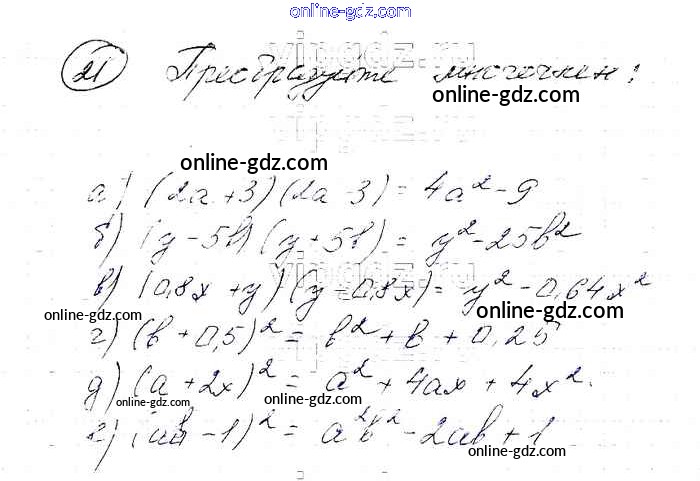 online-gdz.com
vipgdz.ru
21 Преобразуйте многочлен:
online-gdz.com
online-gdz.com
а) (2a + 3)(2a - 3) = 4a² - 9
б) (y - 5b)(y + 5b) = y² - 25b²
vipgdz.ru
в) (0,8x + y)(y - 0,8x) = y² - 0,64x²
online-gdz.com online-gdz.com
г) (b + 0,5)² = b² + b + 0,25
д) (a + 2x)² = a² + 4ax + 4x².
online-gdz.com online-gdz.com
е) (ab - 1)² = a²b² - 2ab + 1
online-gdz.com